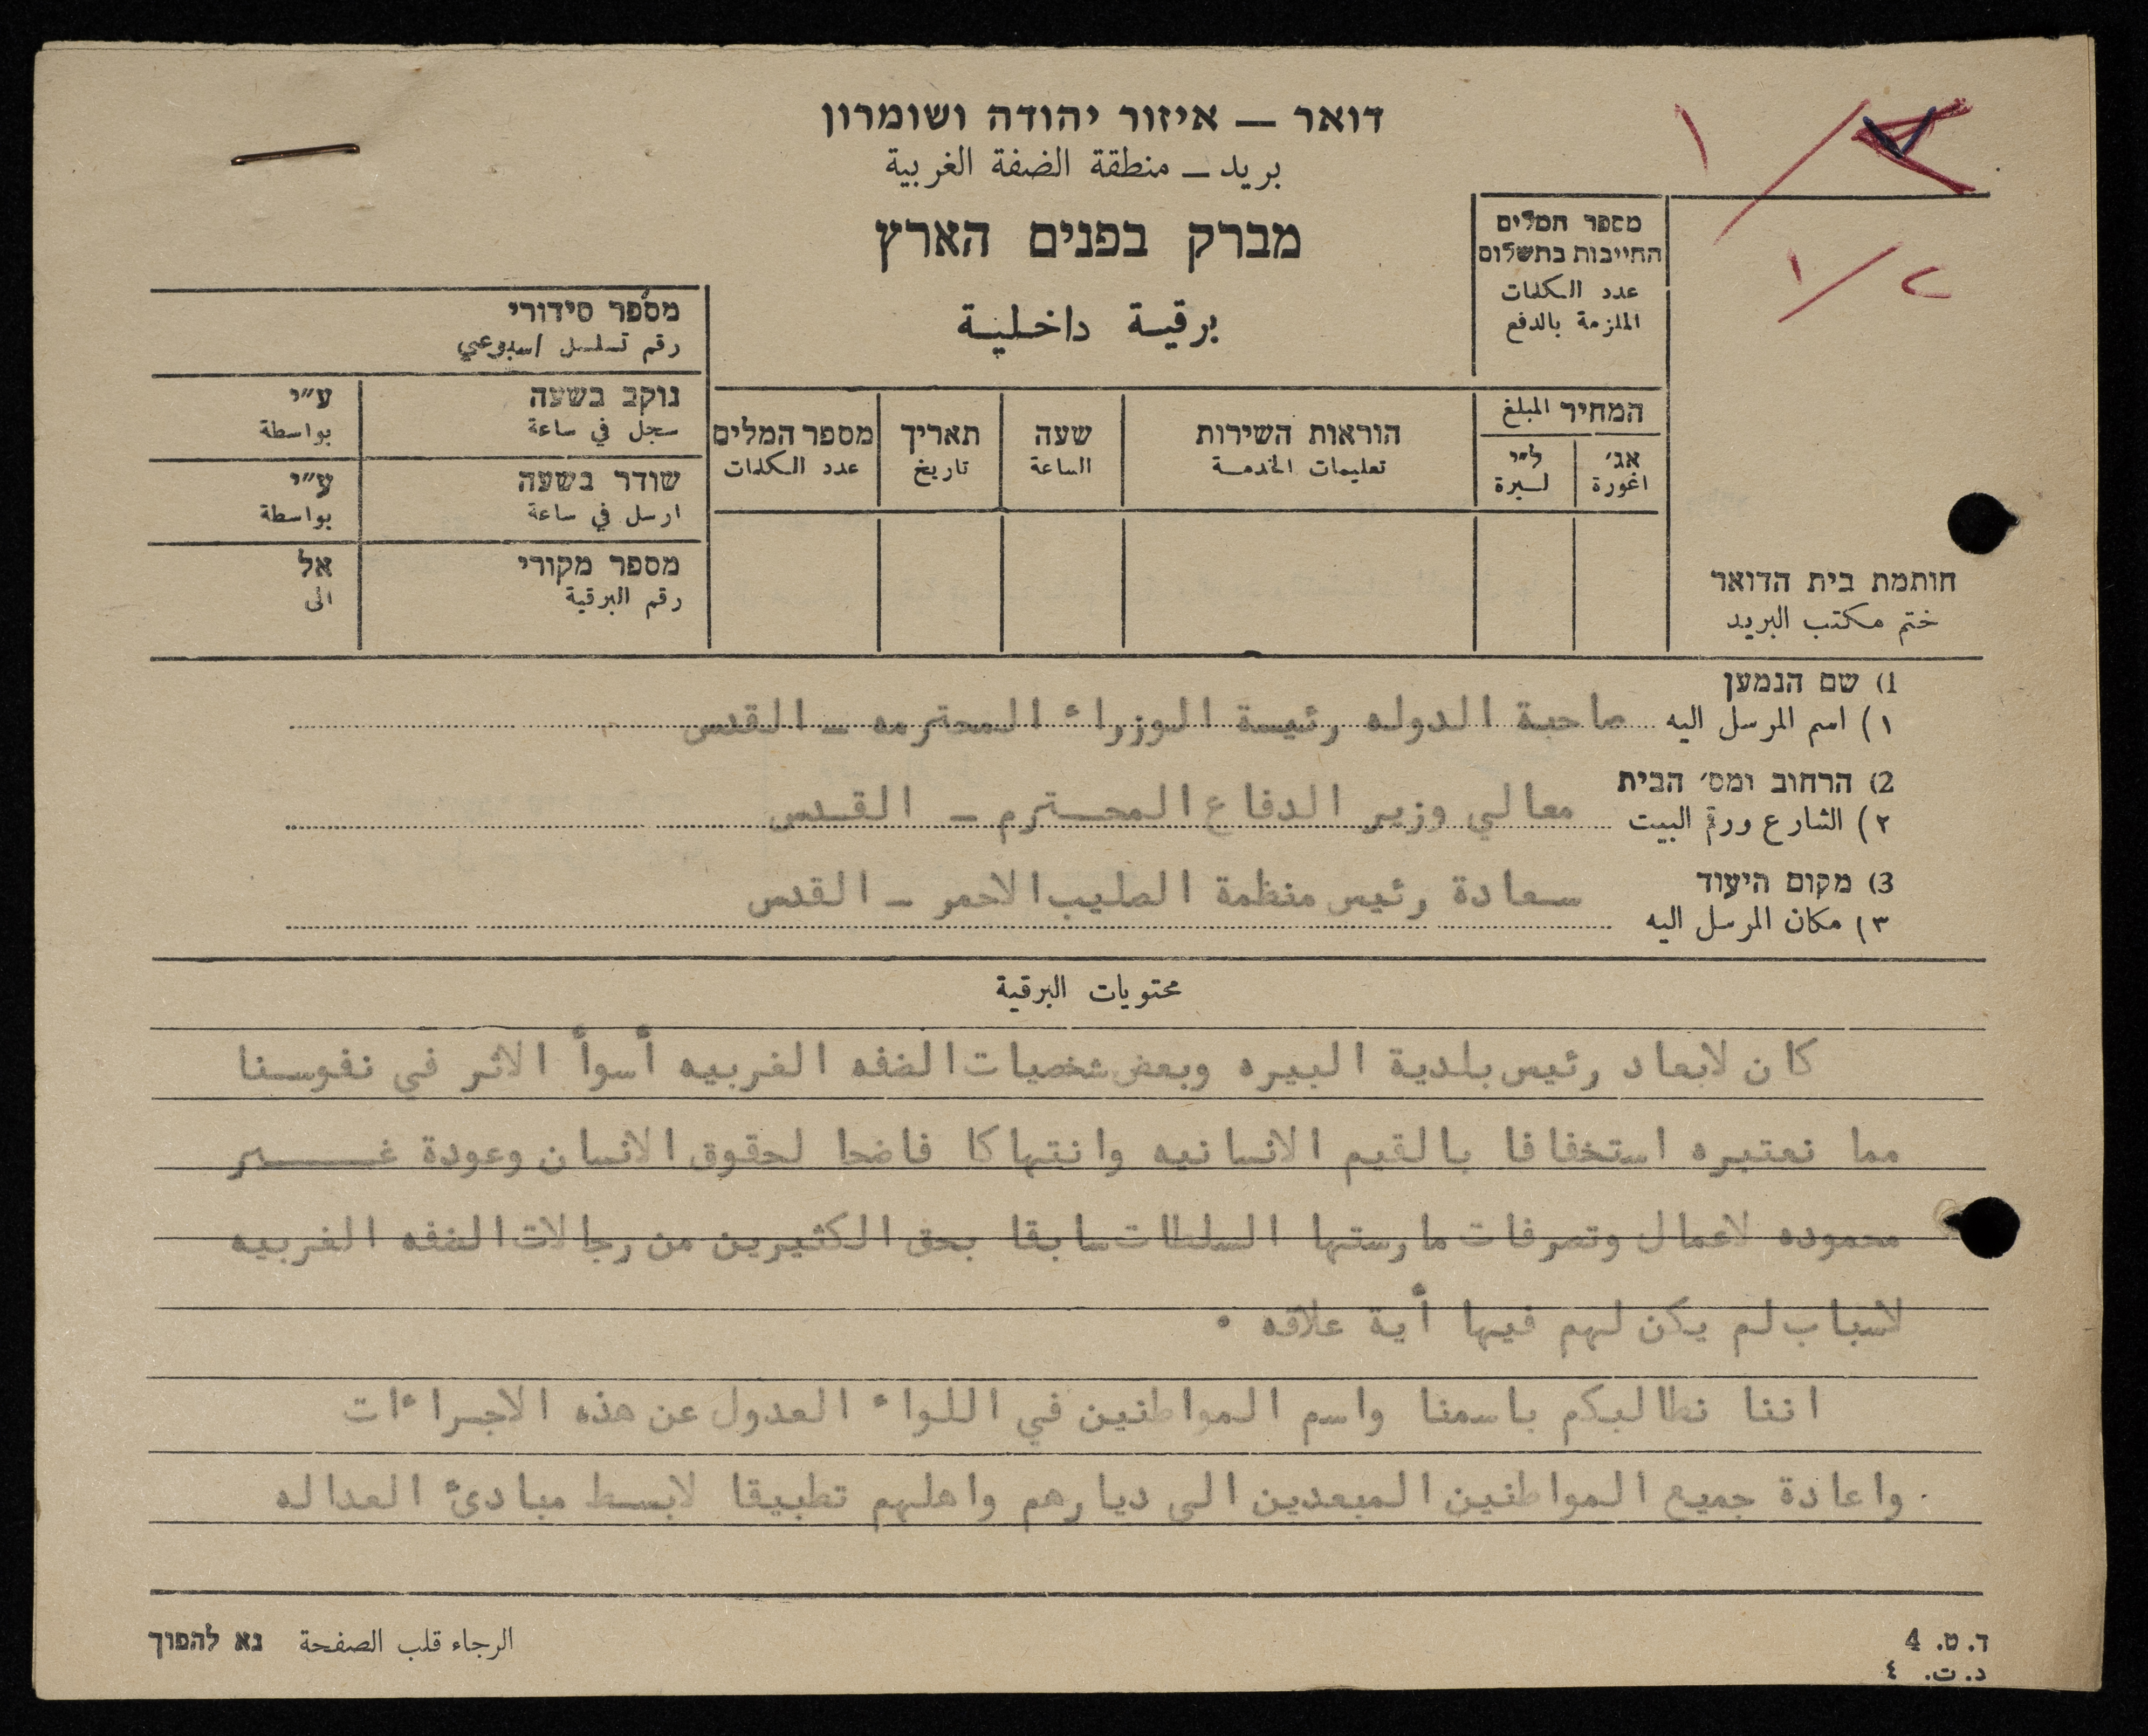 דואר — איזור יהודה ושומרון
بريد — منطقة الضفة الغربية
מברק בפנים הארץ
برقية داخلية
מספר המלים
החייבות בתשלום
عدد الكلمات
الملزمة بالدفع
המחיר المبلغ
אג׳ ל״י
اغورة ليرة
הוראות השירות
تعليمات الخدمة
שעה
الساعة
תאריך
تاريخ
מספר המלים
عدد الكلمات
מספר סידורי
رقم تسلسل اسبوعي
נוקב בשעה ע״י
سجل في ساعة بواسطة
שודר בשעה ע״י
ارسل في ساعة بواسطة
מספר מקורי אל
رقم البرقية الى
חותמת בית הדואר
ختم مكتب البريد
1) שם הנמען
١) اسم المرسل اليه صاحبة الدوله رئيسة الوزراء المحترمه — القدس
2) הרחוב ומס׳ הבית
٢) الشارع ورقم البيت معالي وزير الدفاع المحترم — القدس
3) מקום היעוד
٣) مكان المرسل اليه سعادة رئيس منظمة الصليب الاحمر — القدس
محتويات البرقية
كان لابعاد رئيس بلدية البيره وبعض شخصيات الضفه الغربيه أسوأ الاثر في نفوسنا
مما نعتبره استخفافا بالقيم الانسانيه وانتهاكا فاضحا لحقوق الانسان وعودة غير
محموده لاعمال وتصرفات مارستها السلطات سابقا بحق الكثيرين من رجالات الضفه الغربيه
لاسباب لم يكن لهم فيها أية علاقه .
اننا نطالبكم باسمنا واسم المواطنين في اللواء العدول عن هذه الاجراءات
واعادة جميع المواطنين المبعدين الى ديارهم واهلهم تطبيقا لابسط مبادئ العداله
الرجاء قلب الصفحة נא להפוך
ד. ט. 4
د. ت. ٤